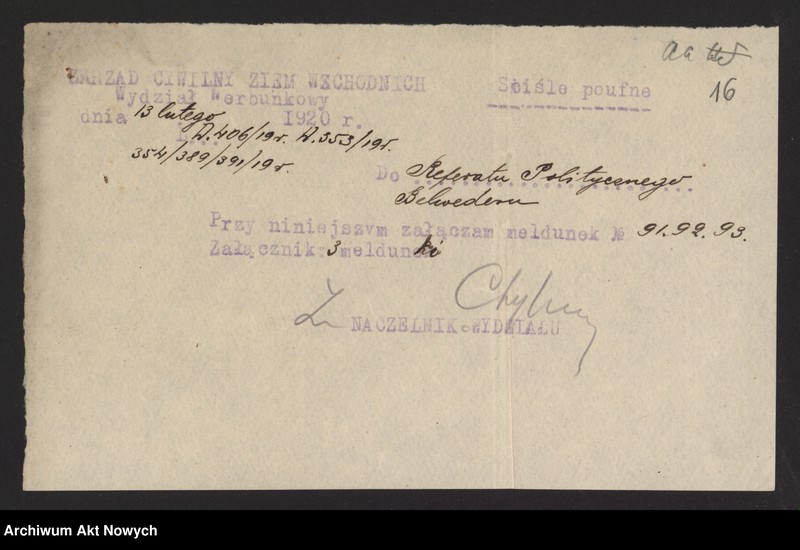 16
ZARZĄD CIWILNY ZIEM WSCHODNICH
Wydział Werbunkowy
Sciśle poufne
dnia 13 lutego 1920 r.
L... A.406/19r. A.353/19r.
354/389/391/19r.
Do Referatu Politycznego
Belwederu
Przy niniejszym załączam meldunek № 91.92.93.
Załącznik: 3 meldunki
Z NACZELNIK WYDZIAŁU
Archiwum Akt Nowych